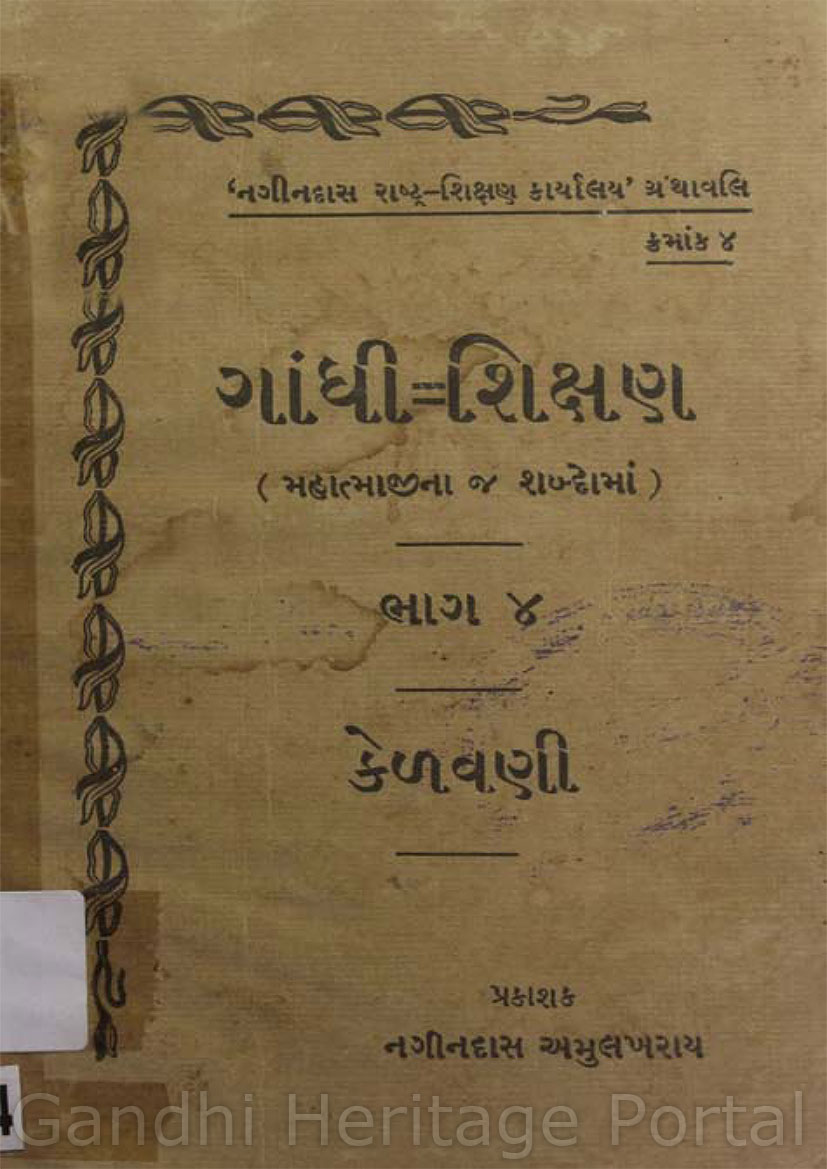 ‘નગીનદાસ રાષ્ટ્ર–શિક્ષણ કાર્યાલય’ ગ્રંથાવલિ
ક્રમાંક ૪
ગાંધી=શિક્ષણ
( મહાત્માજીના જ શબ્દોમાં )
ભાગ ૪
કેળવણી
પ્રકાશક
નગીનદાસ અમુલખરાય
4
Gandhi Heritage Portal